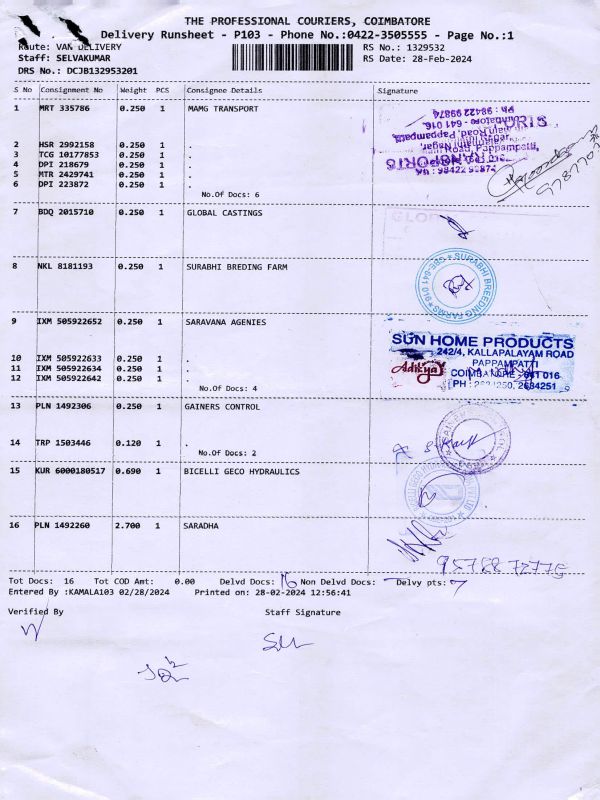 THE PROFESSIONAL COURIERS, COIMBATORE
Delivery Runsheet - P103 - Phone No.:0422-3505555 - Page No.:1
Route: VAN DELIVERY RS No.: 1329532
Staff: SELVAKUMAR RS Date: 28-Feb-2024
DRS No.: DCJB132953201
S No Consignment No Weight PCS Consignee Details Signature
1 MRT 335786 0.250 1 MAMG TRANSPORT
2 HSR 2992158 0.250 1 .
3 TCG 10177853 0.250 1 .
4 DPI 218679 0.250 1 .
5 MTR 2429741 0.250 1 .
6 DPI 223872 0.250 1 .
No.Of Docs: 6
7 BDQ 2015710 0.250 1 GLOBAL CASTINGS
8 NKL 8181193 0.250 1 SURABHI BREDING FARM
SURABHI BREEDING FARMS
9 IXM 505922652 0.250 1 SARAVANA AGENIES
SUN HOME PRODUCTS
242/4, KALLAPALAYAM ROAD
PAPPAMPATTI
10 IXM 505922633 0.250 1 .
11 IXM 505922634 0.250 1 .
12 IXM 505922642 0.250 1 .
Adikya
COIMBATORE - 641 016
2684251
No.Of Docs: 4
13 PLN 1492306 0.250 1 GAINERS CONTROL
14 TRP 1503446 0.120 1 .
No.Of Docs: 2
15 KUR 6000180517 0.690 1 BICELLI GECO HYDRAULICS
16 PLN 1492260 2.700 1 SARADHA
Tot Docs: 16 Tot COD Amt: 0.00 Delvd Docs: 16 Non Delvd Docs: Delvy pts: 7
Entered By :KAMALA103 02/28/2024 Printed on: 28-02-2024 12:56:41
Verified By Staff Signature